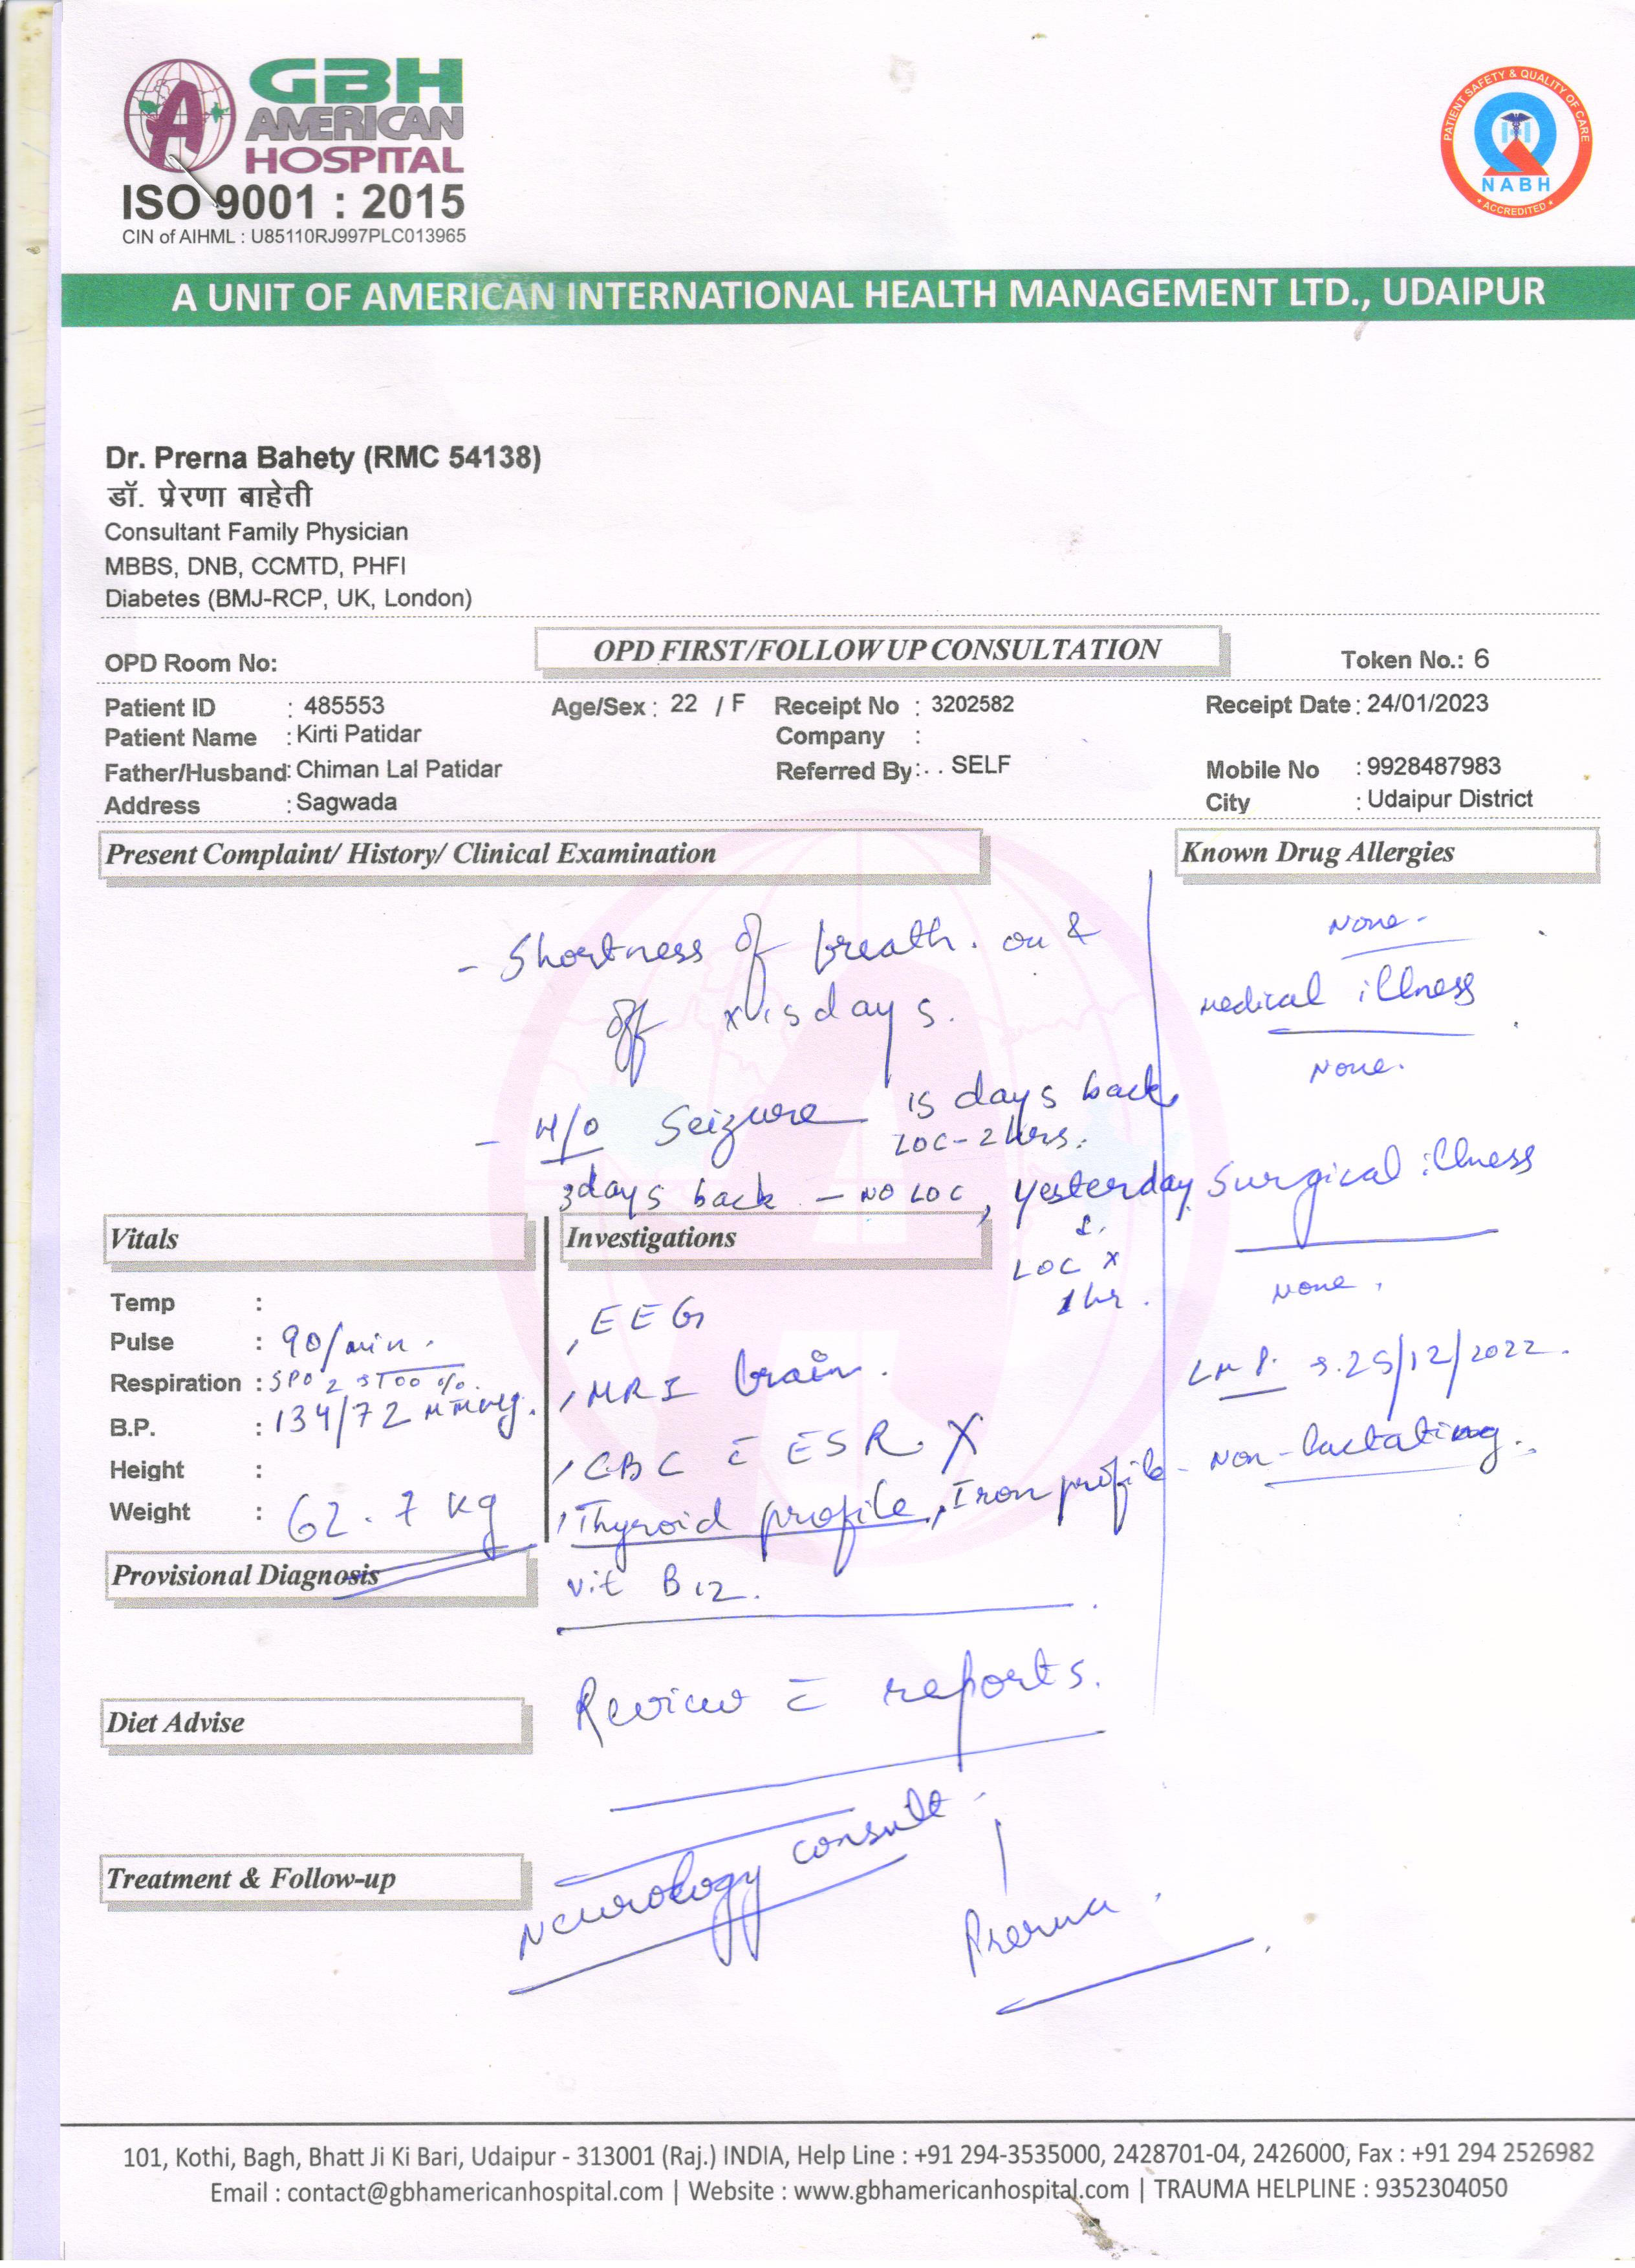 GBH
AMERICAN
HOSPITAL
ISO 9001 : 2015
CIN of AIHML : U85110RJ997PLC013965
PATIENT SAFETY & QUALITY OF CARE
NABH
ACCREDITED
A UNIT OF AMERICAN INTERNATIONAL HEALTH MANAGEMENT LTD., UDAIPUR
Dr. Prerna Bahety (RMC 54138)
डॉ. प्रेरणा बाहेती
Consultant Family Physician
MBBS, DNB, CCMTD, PHFI
Diabetes (BMJ-RCP, UK, London)
OPD Room No: OPD FIRST/FOLLOW UP CONSULTATION Token No.: 6
Patient ID : 485553 Age/Sex : 22 / F Receipt No : 3202582 Receipt Date : 24/01/2023
Patient Name : Kirti Patidar Company :
Father/Husband: Chiman Lal Patidar Referred By:. . SELF Mobile No : 9928487983
Address : Sagwada City : Udaipur District
Present Complaint/ History/ Clinical Examination Known Drug Allergies
- Shortness of breath. on & None -
off x 15 days. medical illness
None.
- H/O Seizure 15 days back
LOC - 2 hrs.
3 days back - NO LOC, yesterday Surgical illness
LOC x
1 hr.
None.
Vitals Investigations
Temp :
Pulse : 90/min.
Respiration : SPO2
B.P. : 134/72 mmHg.
Height :
Weight : 62.7 kg
, EEG
, MRI brain.
, CBC c̄ ESR. X
, Thyroid profile, Iron profile
vit B12.
LMP 25/12/2022.
- Non-lactating.
Provisional Diagnosis
Review c̄ reports.
Diet Advise
Neurology consult
Treatment & Follow-up
Prerna.
101, Kothi, Bagh, Bhatt Ji Ki Bari, Udaipur - 313001 (Raj.) INDIA, Help Line : +91 294-3535000, 2428701-04, 2426000, Fax : +91 294 2526982
Email : contact@gbhamericanhospital.com | Website : www.gbhamericanhospital.com | TRAUMA HELPLINE : 9352304050